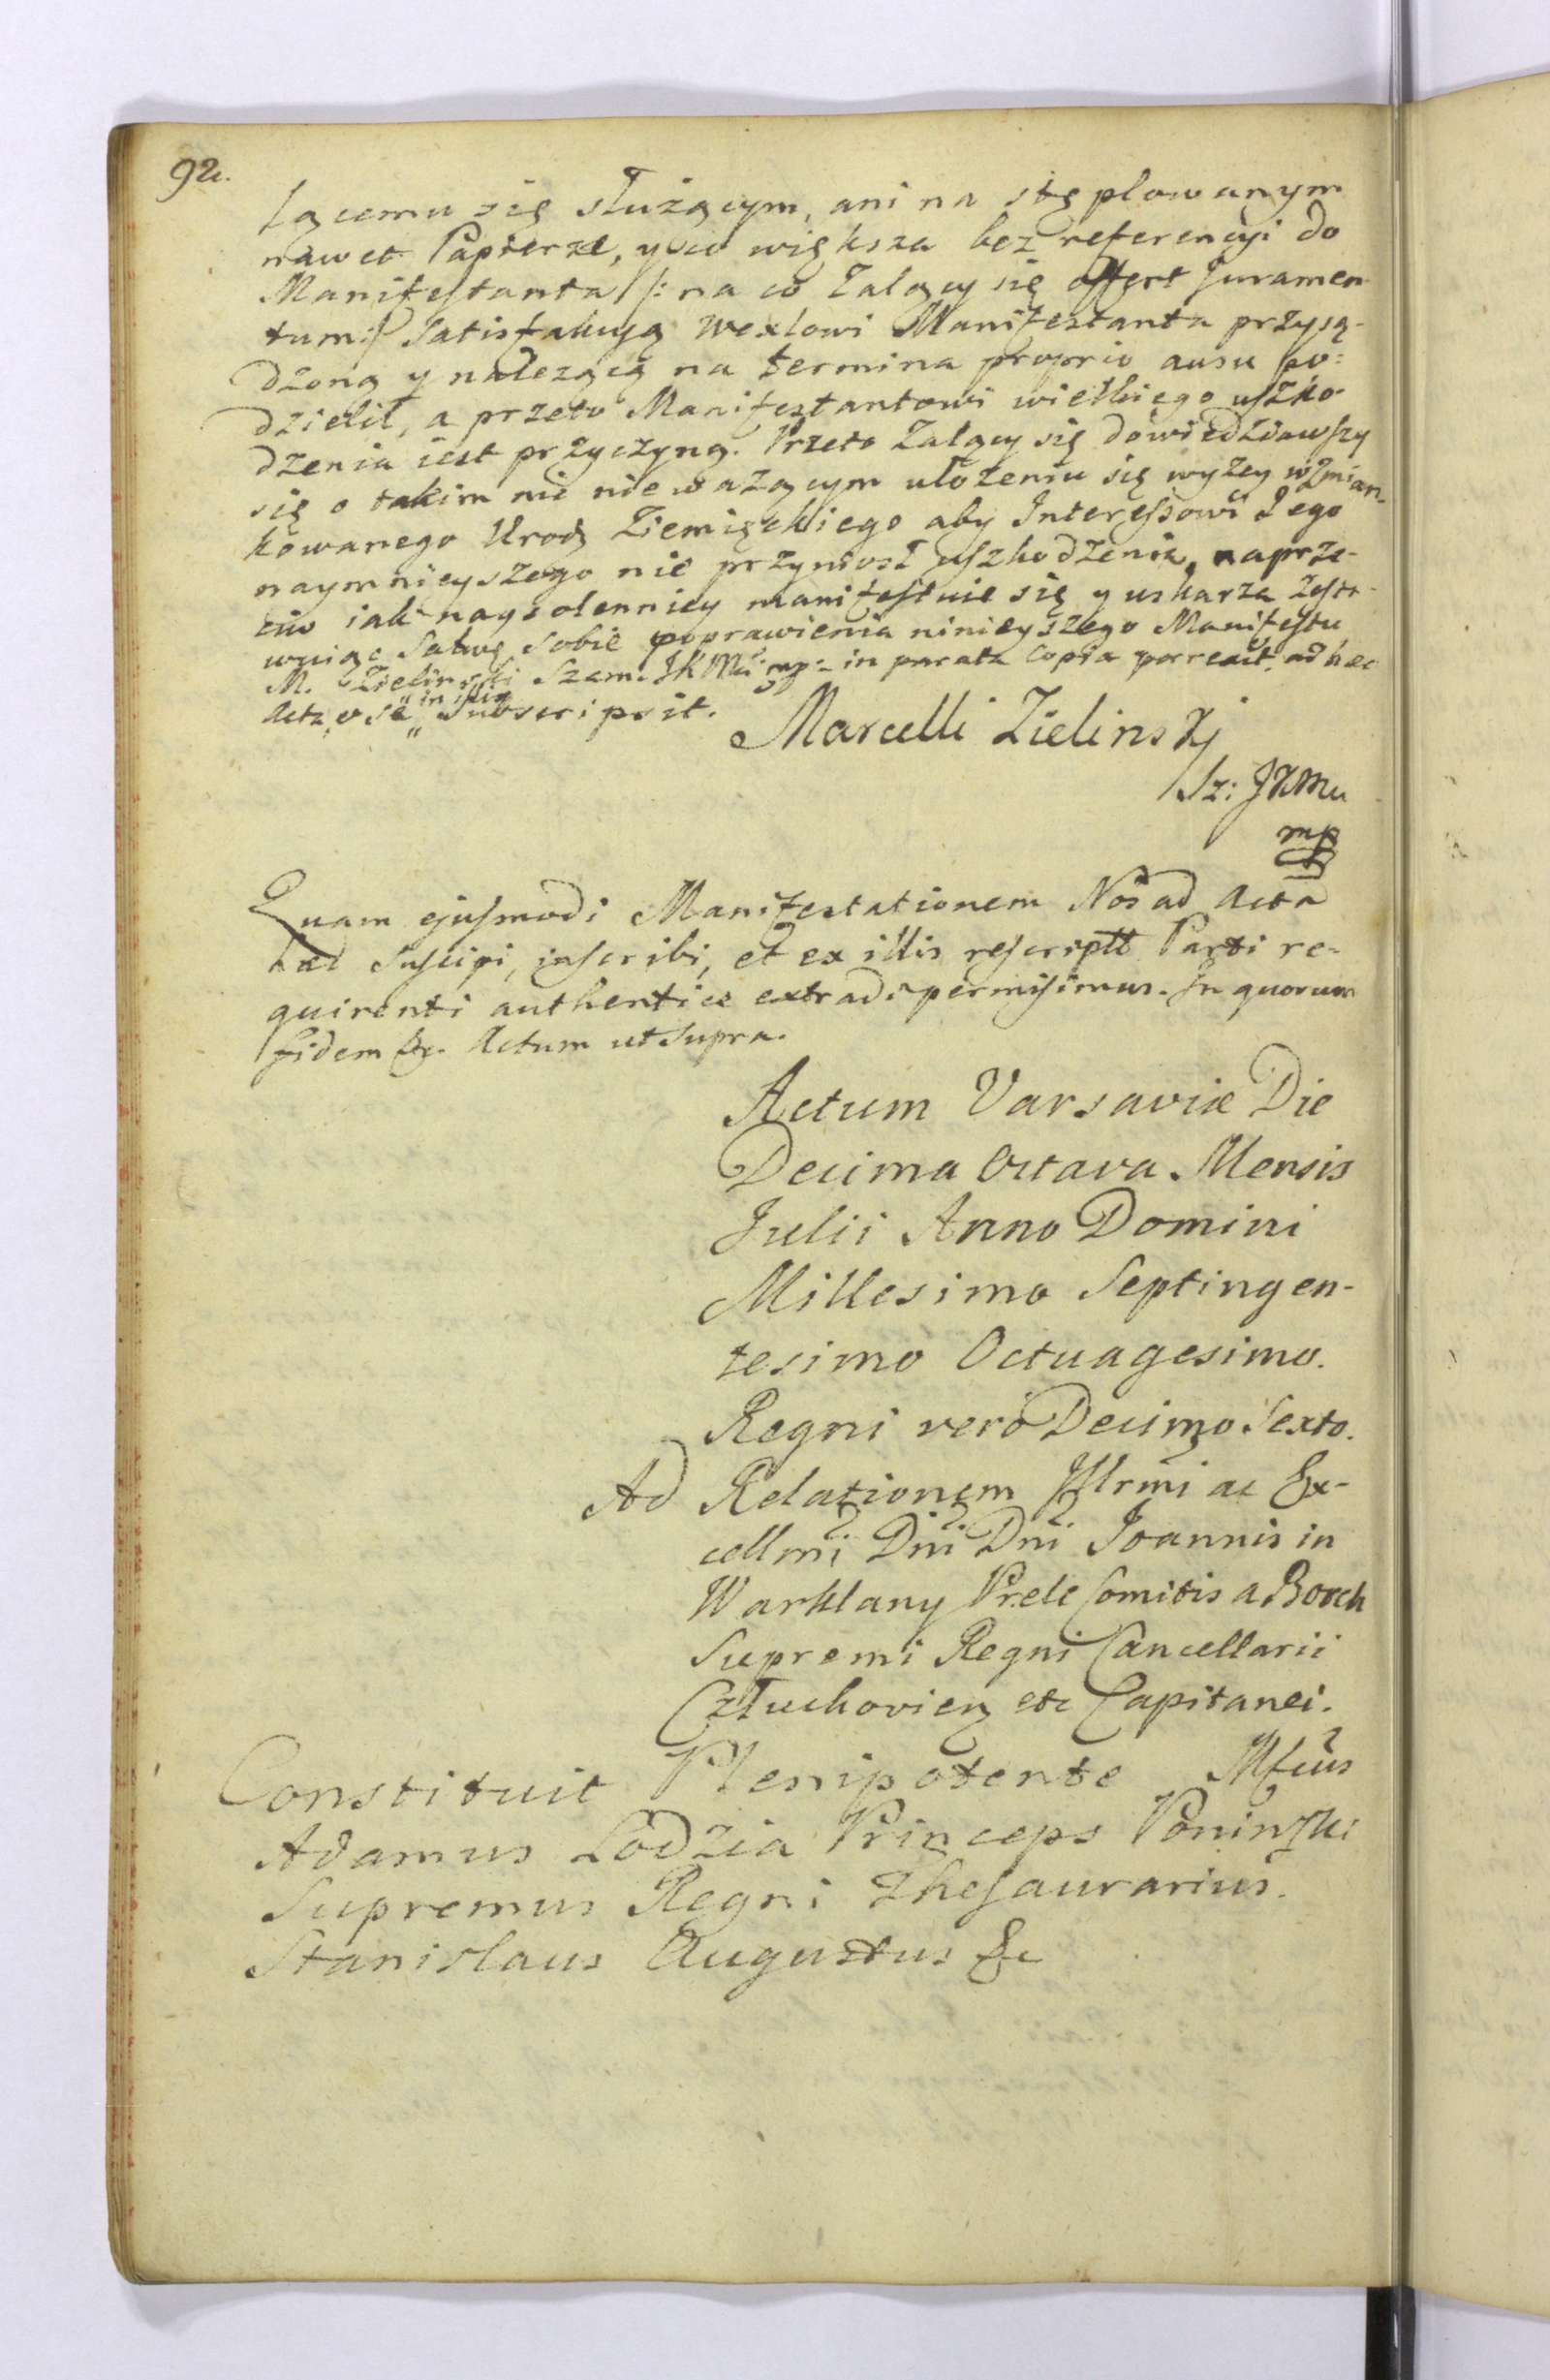 92.
łącemu się służącym, ani na stęplowanym
nawet Papierze, y co większa bez referencyi do
Manifestanta /: na co Żalący się offert Juramen
tum:/ Satisfakcyą Wexlowi Manifestanta przysą-
dzoną y należącą na termina proprio ausu po=
dzielił, a przeto Manifestantowi wielkiego uszko-
dzenia iest przyczyną. Przeto Żalący się dowiedziawszy
się o takim nic nieważącym ułożeniu się wyżey wzmian-
kowanego Urodz Ziemięckiego aby Interessowi Jego
naymnieyszego nie przyniosł uszkodzenia, naprze-
ciw iak naysolenniey manifestuie się y uskarża zosta-
wuiąc Salwę sobie poprawienia ninieyszego Manifestu
M. Zielinski Szam. JKMci mp in parata copia porrexit ad hæc
Acta, e se "in illis" Subscripsit.
Marcelli Zielinskj
Sz: JKMci
mp
Quam ejusmodi Manifestationem Nos ad Acta
hæc suscipi, inscribi, et ex illis rescriptt Parti re-
quirenti authentice extradi permisimus. In quorum
fidem &c. Actum ut Supra.
Actum Varsaviæ Die
Decima Octava Mensis
Julii Anno Domini
Millesimo Septingen-
tesimo Octuagesimo.
Regni verò Decimo Sexto.
Ad Relationem Illrmi ac Ex-
cellmi Dni Dni Joannis in
Warklany Prele Comitis a Borch
Supremi Regni Cancellarii
Człuchovien etc Capitanei.
Constituit Plenipotente Mfcus
Adamus Lodzia Princeps Poninski
Supremus Regni Thesaurarius.
Stanislaus Augustus &c